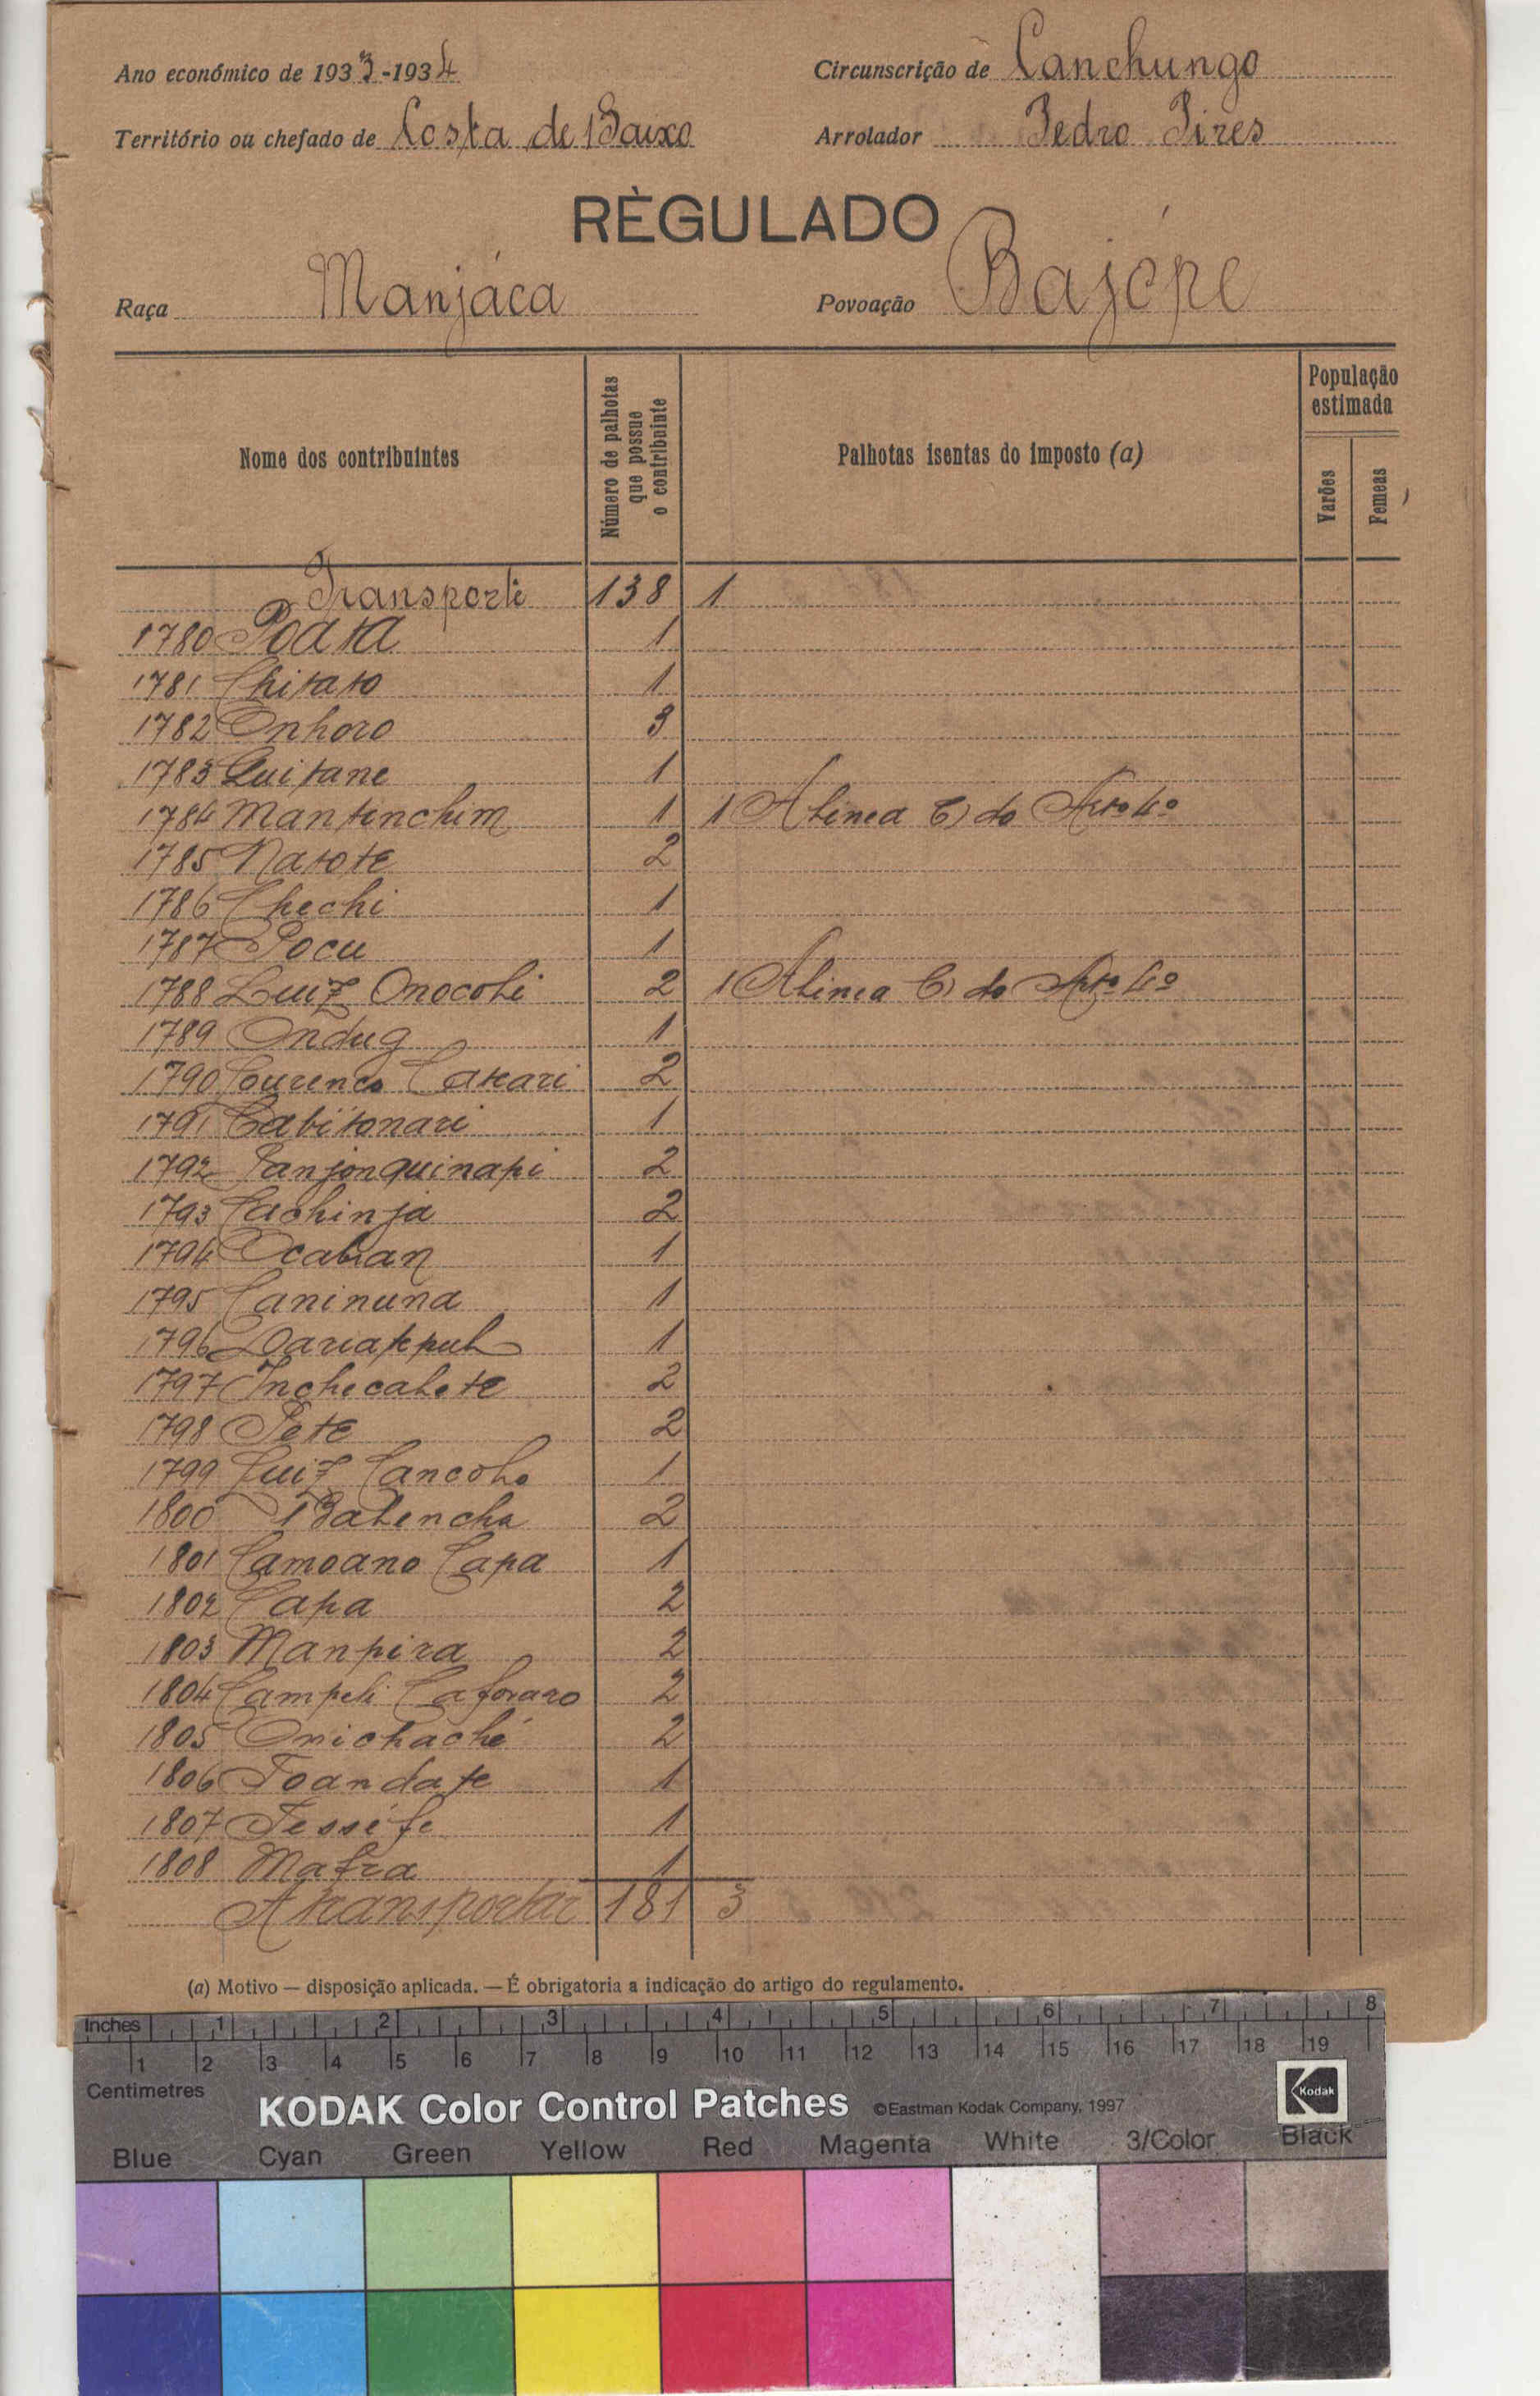 Ano económico de 1933-1934
Circunscrição de Canchungo
Território ou chefado de Costa de Baixo
Arrolador Pedro Pires
RÈGULADO
Raça Manjáca
Povoação Bajópe
Nome dos contribuintes
Número de palhotas que possue o contribuinte
Palhotas isentas do imposto (a)
População estimada
Varões
Femeas
Transporte 138 1
1780 Poata 1
1781 Chitato 1
1782 Onhoro 3
1783 Quitane 1
1784 Mantinchim 1 1 Alinea C) do Artº 4º
1785 Natote 2
1786 Chechi 1
1787 Pocu 1
1788 Luiz Onocoli 2 1 Alinea C) do Artº 4º
1789 Ondug 1
1790 Lourenco Catcari 2
1791 Cabitonari 1
1792 Panjonquinapi 2
1793 Cachinja 2
1794 Ocaban 1
1795 Caninuna 1
1796 1
1797 Inchecalete 2
1798 Pete 2
1799 Luiz Cancola 1
1800 Balencha 2
1801 Camoano Capa 1
1802 Capa 2
1803 Manpira 2
1804 Campeli 2
1805 Onichaché 2
1806 Toandate 1
1807 Tessife 1
1808 Mafra 1
A transportar 181 3
(a) Motivo — disposição aplicada. — É obrigatoria a indicação do artigo do regulamento.
Inches 1 2 3 4 5 6 7 8
1 2 3 4 5 6 7 8 9 10 11 12 13 14 15 16 17 18 19
Centimetres
KODAK Color Control Patches ©Eastman Kodak Company, 1997 Kodak
Blue Cyan Green Yellow Red Magenta White 3/Color Black